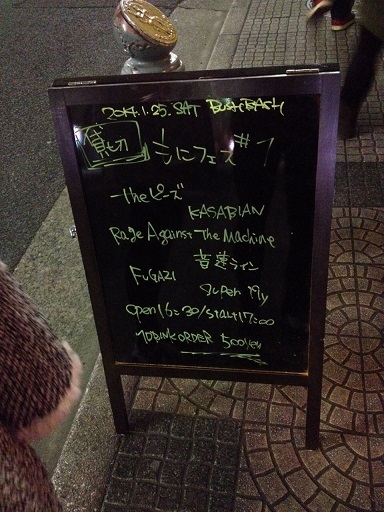 2014.1.25.SAT BUSHBASH
貸切 らにフェス #1
the ピーズ
KASABIAN
Rage Against The Machine
音速ライン
FUGAZI
Super fly
open 16:30/start 17:00
1DRINK ORDER 500yen